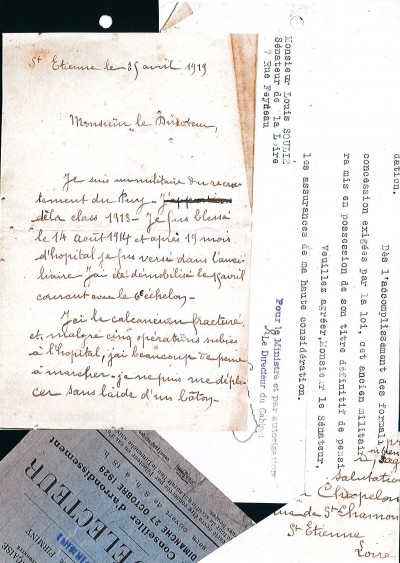 St Etienne le 25 avril 1919
Monsieur le Directeur,
Je suis un militaire du recru-
tement du Puy
de la class 1913 - Je fus blessé
le 14 août 1914 et après 19 mois
d'hopital je fus versé dans l'auxi-
liaire J'ai été démobilisé le 15 avril
courant avec le 6e échelon -
J'ai le calcaneum fracturé
et, malgré cinq opérations subies
à l'hopital, j'ai beaucoup de peine
à marcher - je ne puis me dépla-
cer sans l'aide d'un bâton -
Monsieur Louis SOULIE
Sénateur de la Loire
7 Rue Peyreau
dation.
Dès l'accomplissement des formali
concession exigées par la loi, cet ancien militair
ra mis en possession de son titre définitif de pensi
Veuillez agréer, Monsieur le Sénateur,
les assurances de ma haute considération.
Pour le Ministre et par autorisation
Le Directeur du Cabinet
salutation
Chapelon
rue de St Chamon
St Etienne
Loire
Conseiller d'arrondissement
DIMANCHE 27 OCTOBRE 1929
ÉLECTEUR
FIRMINY